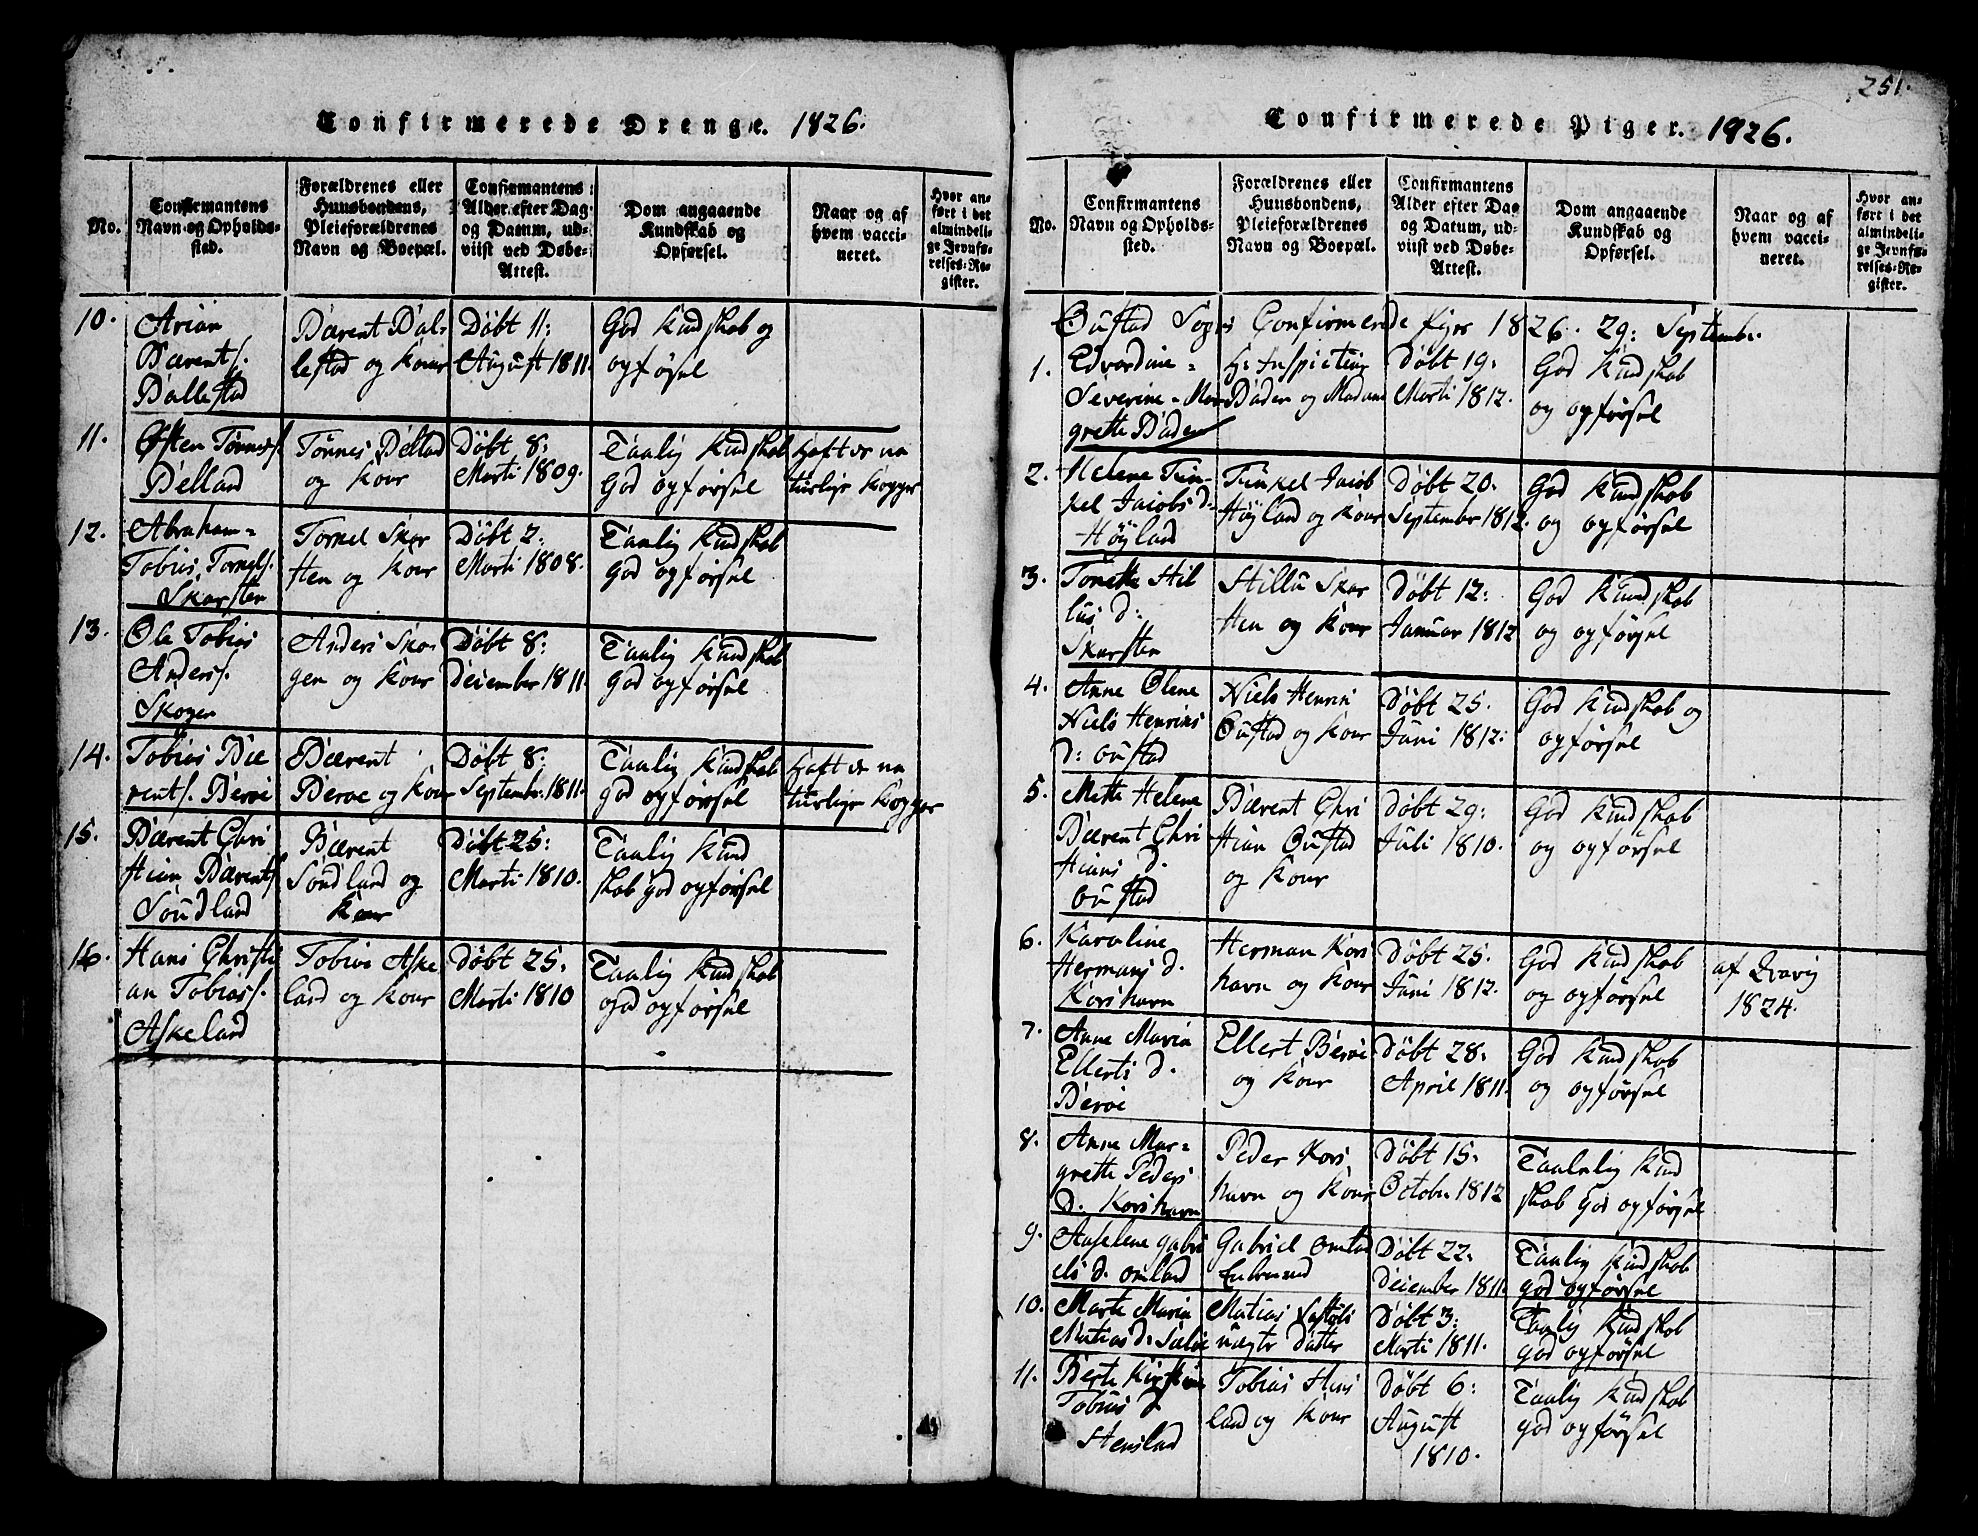 Confirmerede Drenge. 1826.
No.
Confirmantens
Navn og Opholds-
sted.
Forældrenes eller
Huusbondens,
Pleieforældrenes
Navn og Boepæl.
Confirmantens
Alder efter Dag
og Datum, ud-
viist ved Døbe-
Attest.
Dom angaaende
Kundskab og
Opførsel.
Naar og af
hvem vacci-
neret.
Hvor an-
ført i det
almindeli-
ge Jevnfø-
relses-Re-
gister.
10.
Arian
Bærents.
Ballestad
Bærent Bal-
lestad og Kone
Döbt 11:
August 1811.
God Kundskab og
opförsel
11.
Østen Tønnes.
Belland
Tönnes Belland
og Kone
Döbt 8:
Marti 1809.
Taalig Kundskab
God opförsel
Haft de na
turlige Kopper
12.
Abraham=
Tobias Tornels.
Skarsten
Tornel Skar
sten og Kone
Döbt 2:
Marti 1808.
Taalig Kundskab
God opförsel
13.
Ole Tobias
Anders.
Skogen
Anders Sko-
gen og Kone
Döbt 8:
December 1811.
Taalig Kundskab
God opförsel
14.
Tobias Bæ
rents. Beroe
Bærent
Beroe og Kone
Döbt 8:
Septembr. 1811.
Taalig Kundskab
god opförsel
Haft de na
turlige Kopper
15.
Bærent Chri
stian Bærents
Söndland
Bærent
Söndland og
Kone
Döbt 25:
Marti 1810.
Taalig Kund
skab god opförsel
16.
Hans Christi
an Tobias.
Askeland
Tobias Aske
land og Kone
Döbt 25.
Marti 1810
Taalig Kundskab
god opförsel
251.
Confirmerede Piger. 1926.
No.
Confirmantens
Navn og Opholds-
sted.
Forældrenes eller
Huusbondens,
Pleieforældrenes
Navn og Boepæl.
Confirmantens
Alder efter Dag
og Datum, ud-
viist ved Døbe-
Attest.
Dom angaaende
Kundskab og
Opførsel.
Naar og af
hvem vacci-
neret.
Hvor an-
ført i det
almindeli-
ge Jevnfø-
relses-Re-
gister.
Oustad Sogns Confirmerede 1826. 29: Septembr.
1.
Edvardine=
Severine=Mar
grethe Bader
Hr Inspicteur
Bader og Madame
Döbt 19:
Marti 1812.
God Kundskab
og opförsel
2.
Helene Tön-
kel Jacobs d:
Höyland
Tönkel Jacob
Höyland og Kone
Döbt 20:
September 1812.
God Kundskab
og opförsel
3.
Tonette Stil
lus d:
Skarsten
Stillu Skar
sten og Kone
Döbt 12:
Januar 1812
God Kundskab
og opförsel
4.
Anne Olene
Niels Henrics
d: Oustad
Niels Henric
Oustad og Kone
Döbt 25.
Juni 1812:
God Kundskab og
opförsel
5.
Mette Helene
Bærent Chri
stians d.
Oustad
Bærent Chri
stian Oustad
og Kone
Döbt 29:
Juli 1810.
God Kundskab
og opförsel
6.
Karoline
Hermans d.
Korshavn
Herman Kors
havn og Kone
Döbt 25.
Juni 1812.
God Kundskab
og opförsel
af
1824.
7.
Anne Maria
Ellerts d.
Beroe
Ellert Beroe
og Kone
Döbt 28:
April 1811.
God Kundskab
og opförsel
8.
Anne Mar=
grethe Peders
d. Korshavn
Peder Kors
havn og Kone
Döbt 15.
Octobr. 1812
Taalelig Kund
skab God opförsel
9.
Aaselene Gabri
els d. Omland
Gabriel Omland
Enkemand
Döbt 22.
December 1811.
Taalig Kundskab
god opförsel
10.
Marte Maria
Matias d: Sælöe
Matias
uægte Datter
Döbt 3:
Marti 1811.
Taalig Kundskab
god opförsel
11.
Berte Kirstine
Tobias d.
Stensland
Tobias Stens
land og Kone
Döbt 6:
August
1810.
Taalig Kundskab
god opförsel